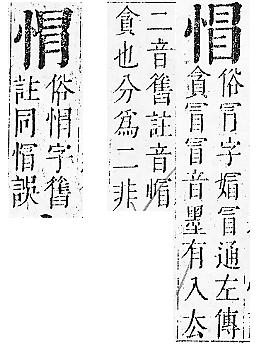 俗冐字媢冒通左傳
貪冒冒音墨有入厺
二音舊註音媢
貪也分爲二非
俗悁字舊
註同誤